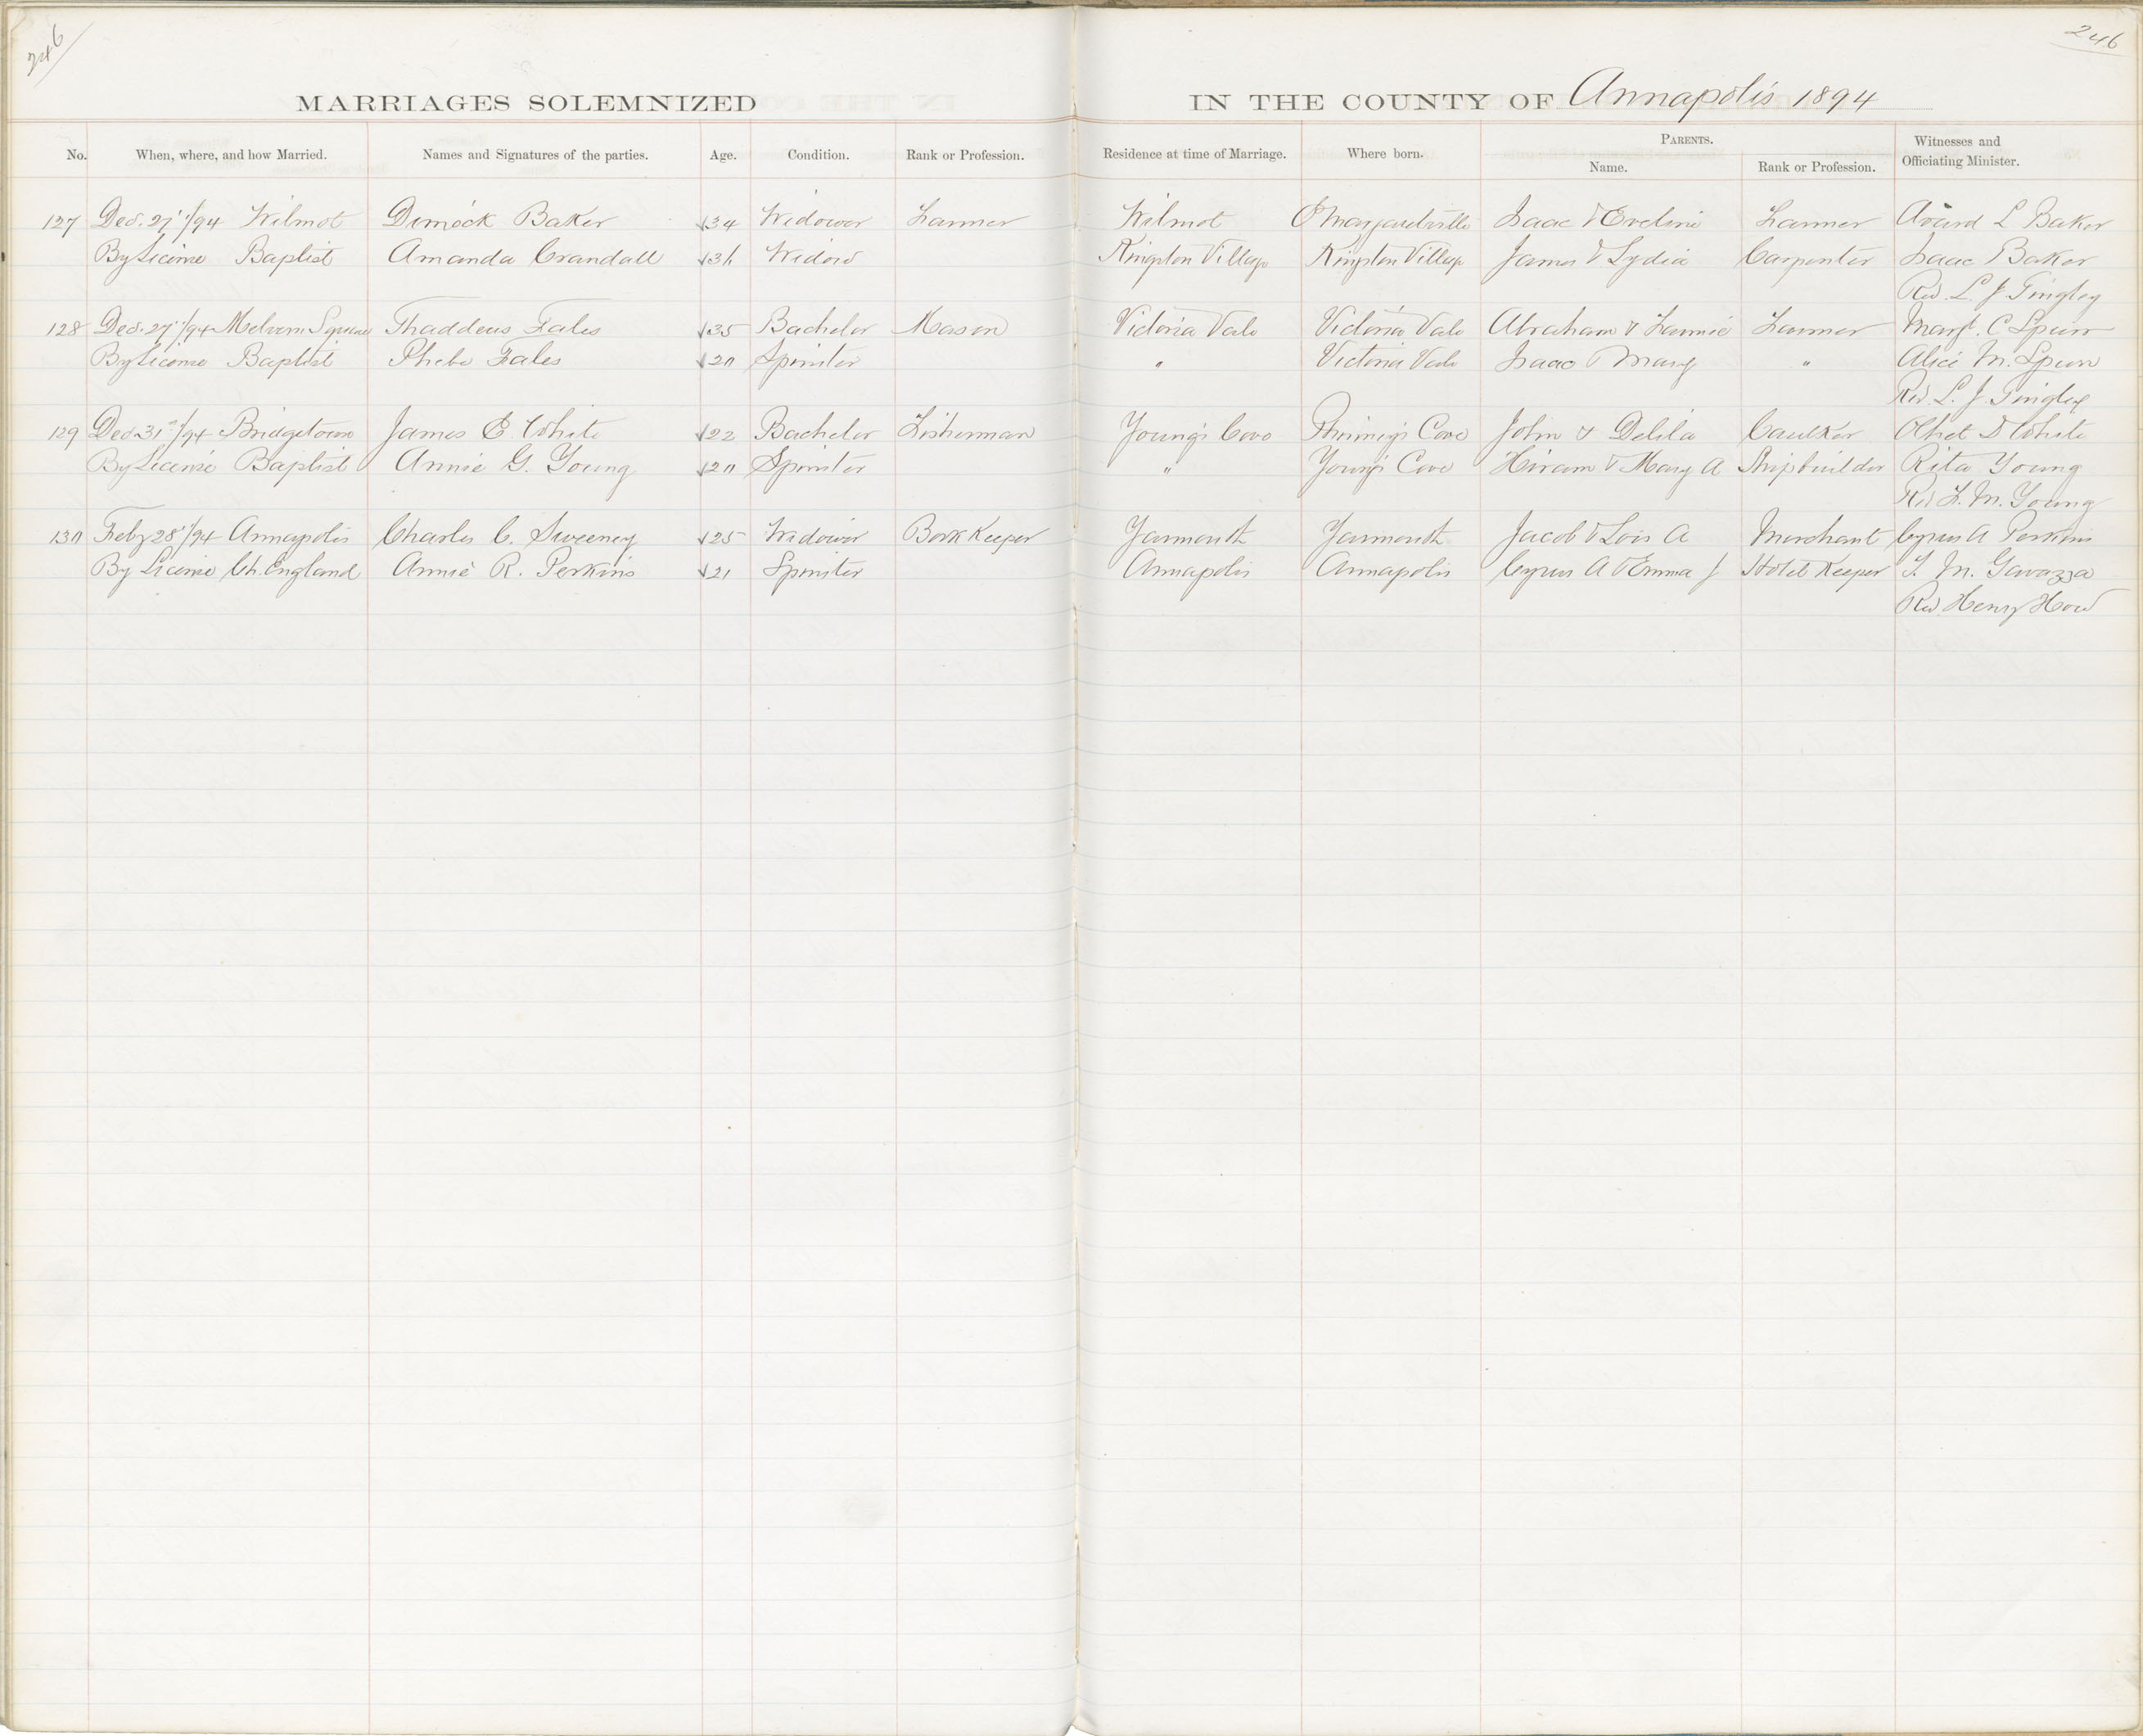 246
246
MARRIAGES SOLEMNIZED IN THE COUNTY OF Annapolis 1894
No. When, where, and how Married. Names and Signatures of the parties. Age. Condition. Rank or Profession. Residence at time of Marriage. Where born. PARENTS. Name. Rank or Profession. Witnesses and Officiating Minister.
127 Dec. 27"/94 Wilmot Dimock Baker 34 Widower Farmer Wilmot Margaretville Isaac & Eveline Farmer Avard L Baker
By License Baptist Amanda Crandall 36 Widow Kingston Village Kingston Village James & Lydia Carpenter Isaac Baker
Rev. L. J. Tingley
128 Dec. 27"/94 Melvern Square Thaddeus Fales 35 Bachelor Mason Victoria Vale Victoria Vale Abraham & Fannie Farmer Margt. C Spurr
By License Baptist Phebe Fales 20 Spinster " Victoria Vale Isaac & Mary " Alice M. Spurr
Rev L. J. Tingley
129 Dec 31st/94 Bridgetown James E. White 22 Bachelor Fisherman Young's Cove Phinney's Cove John & Delila Caulker D White
By License Baptist Annie G. Young 20 Spinster " Young's Cove Hiram & Mary A Shipbuilder Rita Young
Rev F. M. Young
130 Feby 28"/94 Annapolis Charles C. Sweeney 25 Widower Book Keeper Yarmouth Yarmouth Jacob & Lois A Merchant Cyrus A Perkins
By License Ch. England Annie R. Perkins 21 Spinster Annapolis Annapolis Cyrus A & Emma J Hotel Keeper T. M. Gavazza
Rev Henry How